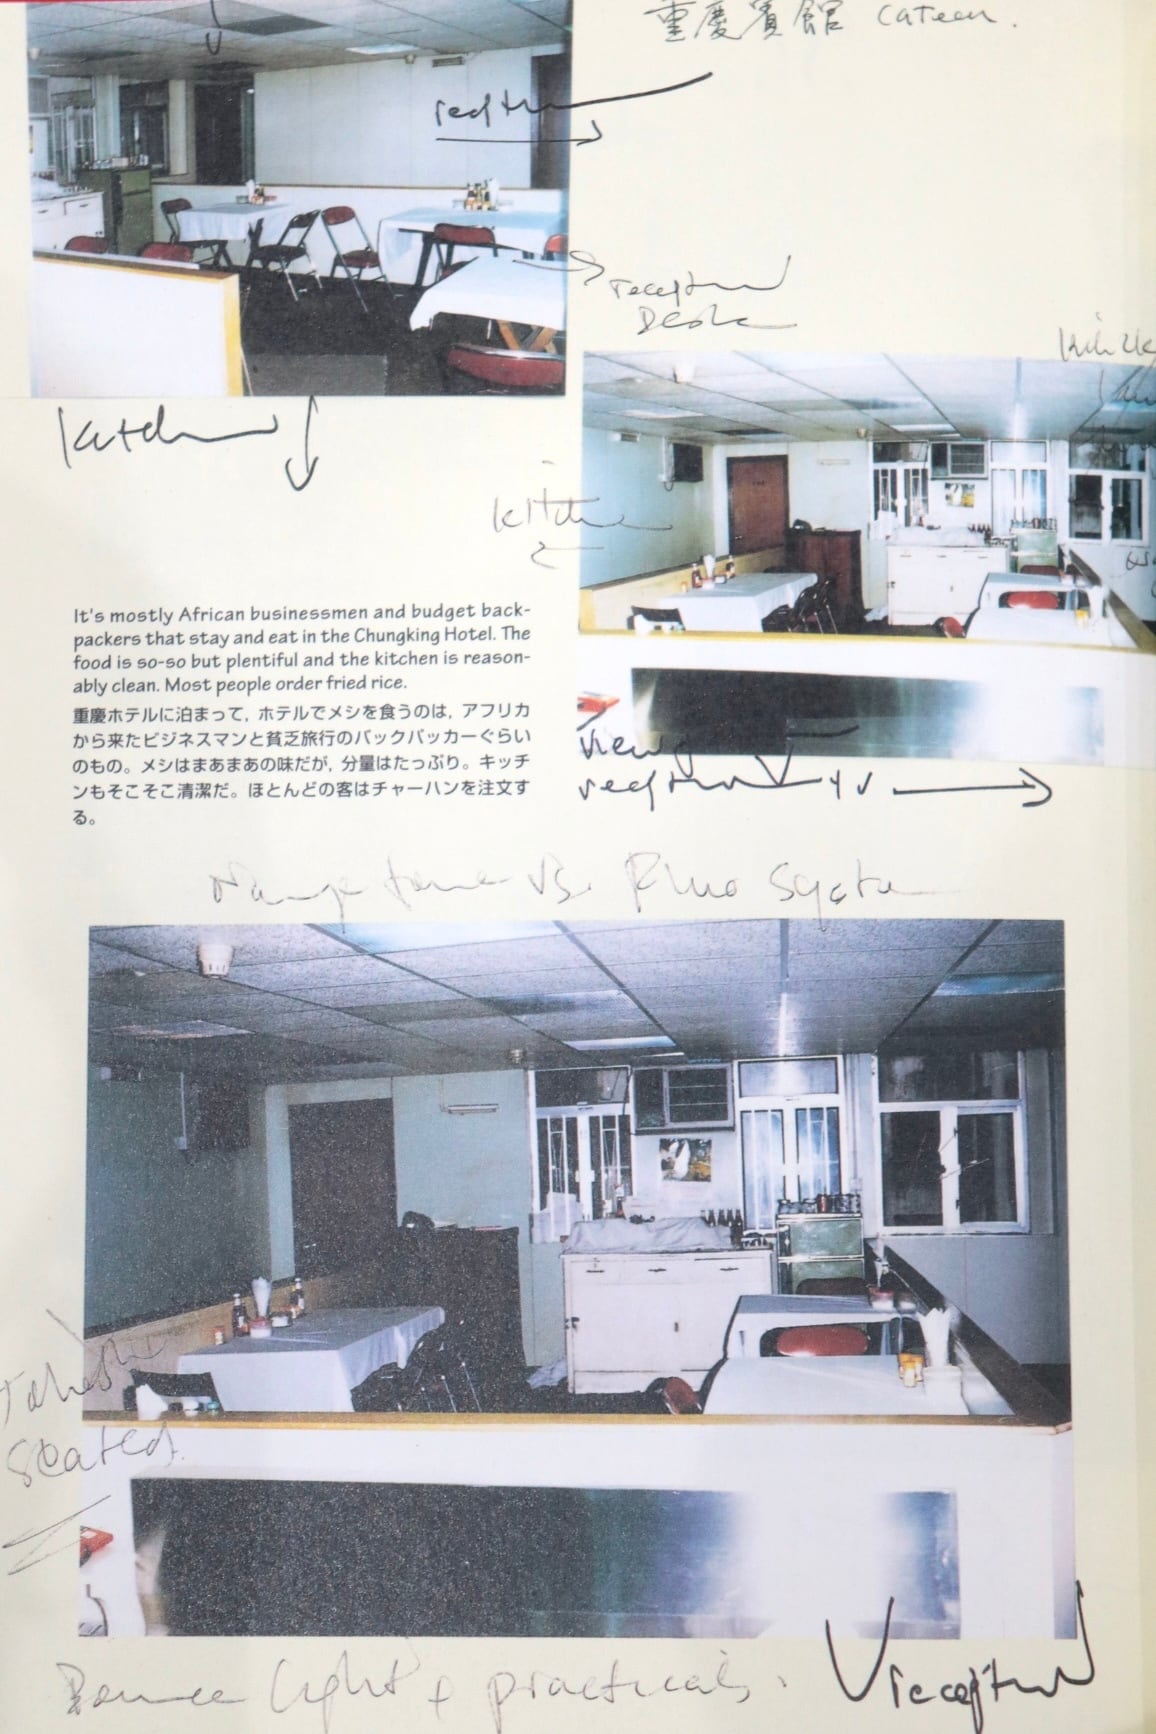 重慶賓館 cateen.
reception
reception
Desk
kitchen
kitchen
It's mostly African businessmen and budget back-
packers that stay and eat in the Chungking Hotel. The
food is so-so but plentiful and the kitchen is reason-
ably clean. Most people order fried rice.
重慶ホテルに泊まって, ホテルでメシを食うのは, アフリカ
から来たビジネスマンと貧乏旅行のバックパッカーぐらい
のもの。メシはまあまあの味だが, 分量はたっぷり。キッチ
ンもそこそこ清潔だ。ほとんどの客はチャーハンを注文す
る。
view
reception
vs.
seated
Bounce light + practicals.
reception